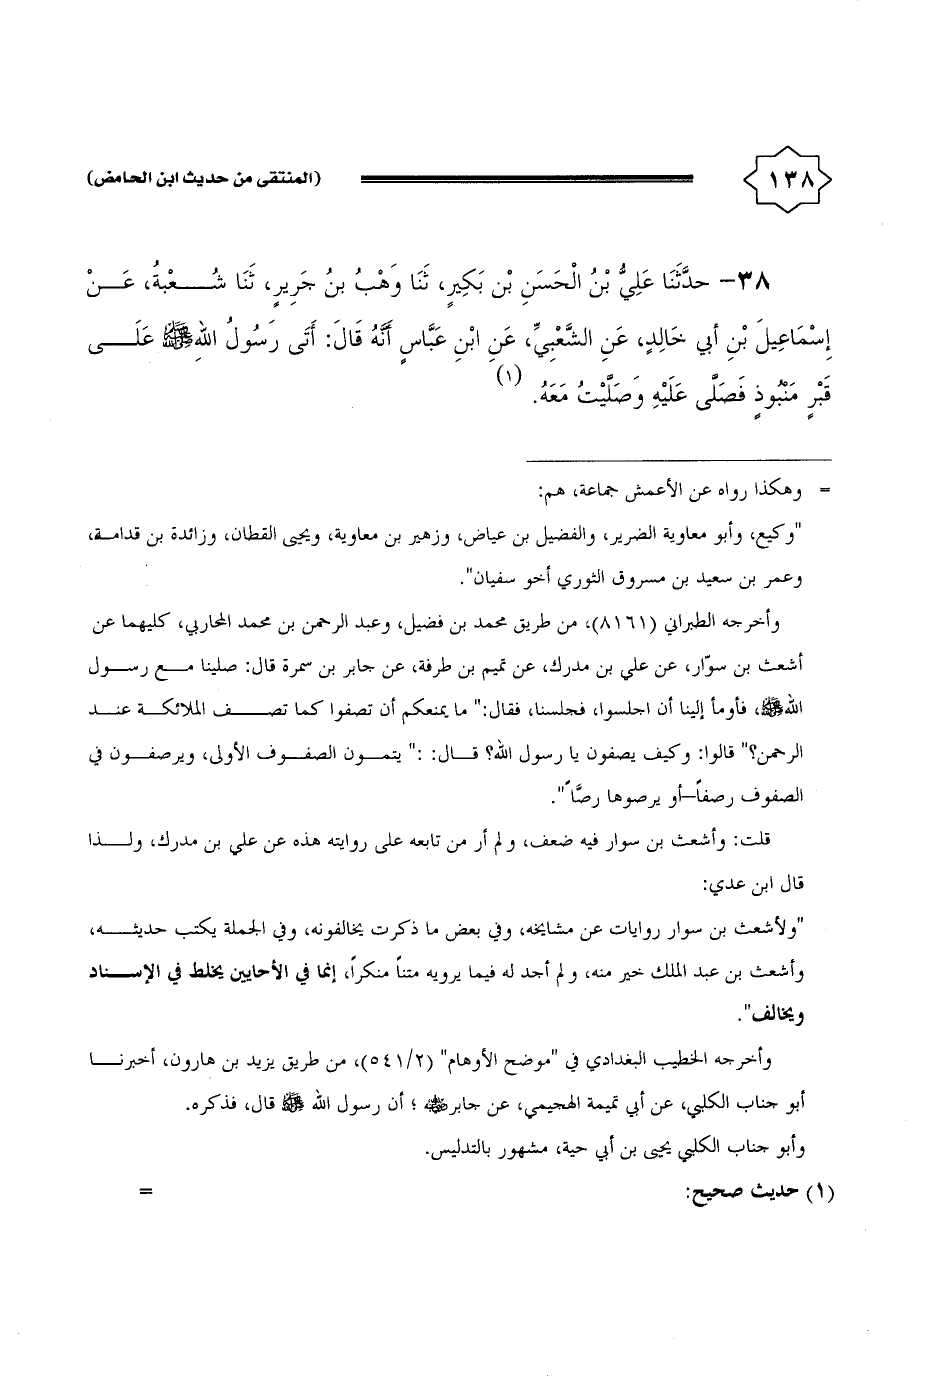 ١٣٨ (المنتقى من حديث ابن الحامض)
٣٨- حدَّثَنَا عَلِيُّ بْنُ الْحَسَنِ بْنِ بَكِيرٍ، ثَنَا وَهْبُ بنُ جَرِيرٍ، ثَنَا شُعْبةُ، عَنْ
إِسْمَاعِيلَ بْنِ أبي خَالِدٍ، عَنِ الشَّعْبِيِّ، عَنِ ابْنِ عَبَّاسٍ أَنَّهُ قَالَ: أَتَى رَسُولُ اللهِ ﷺ عَلَى
قَبْرٍ مَنْبُوذٍ فَصَلَّى عَلَيْهِ وَصَلَّيْتُ مَعَهُ. (١)
= وهكذا رواه عن الأعمش جماعة، هم:
"وكيع، وأبو معاوية الضرير، والفضيل بن عياض، وزهير بن معاوية، ويحيى القطان، وزائدة بن قدامة،
وعمر بن سعيد بن مسروق الثوري أخو سفيان".
وأخرجه الطبراني (٨١٦١)، من طريق محمد بن فضيل، وعبد الرحمن بن محمد المحاربي، كليهما عن
أشعث بن سوّار، عن علي بن مدرك، عن تميم بن طرفة، عن جابر بن سمرة قال: صلينا مع رسول
الله ﷺ، فأومأ إلينا أن اجلسوا، فجلسنا، فقال:" ما يمنعكم أن تصفوا كما تصف الملائكة عند
الرحمن؟" قالوا: وكيف يصفون يا رسول الله؟ قال: :" يتمون الصفوف الأولى، ويرصفون في
الصفوف رصفاً–أو يرصوها رصًّا".
قلت: وأشعث بن سوار فيه ضعف، و لم أر من تابعه على روايته هذه عن علي بن مدرك، ولذا
قال ابن عدي:
"ولأشعث بن سوار روايات عن مشايخه، وفي بعض ما ذكرت يخالفونه، وفي الجملة يكتب حديثه،
وأشعث بن عبد الملك خير منه، و لم أجد له فيما يرويه متناً منكراً، إنما في الأحايين يخلط في الإسناد
ويخالف".
وأخرجه الخطيب البغدادي في "موضح الأوهام" (٥٤١/٢)، من طريق يزيد بن هارون، أخبرنا
أبو جناب الكلبي، عن أبي تميمة الهجيمي، عن جابر ﵁ ؛ أن رسول الله ﷺ قال، فذكره.
وأبو جناب الكلبي يحيى بن أبي حية، مشهور بالتدليس.
(١) حديث صحيح: =